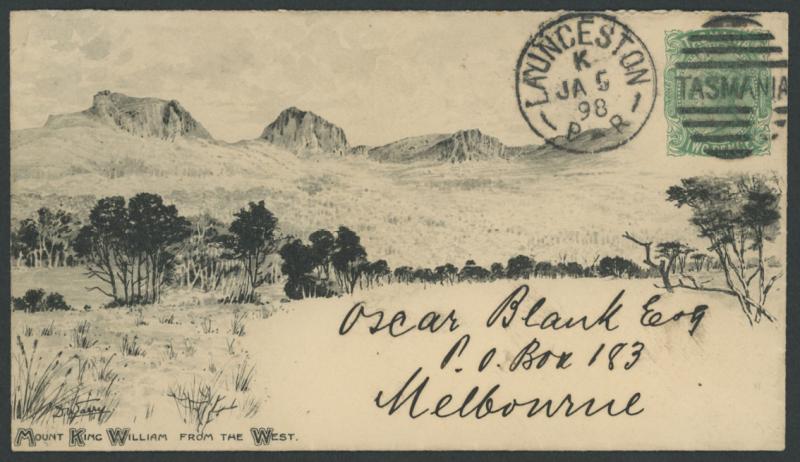 LAUNCESTON
K
JA 5
98
P R
1
TASMANIA
TWO PENCE
Oscar Blank Esq
P.O Box 183
Melbourne
MOUNT KING WILLIAM FROM THE WEST.